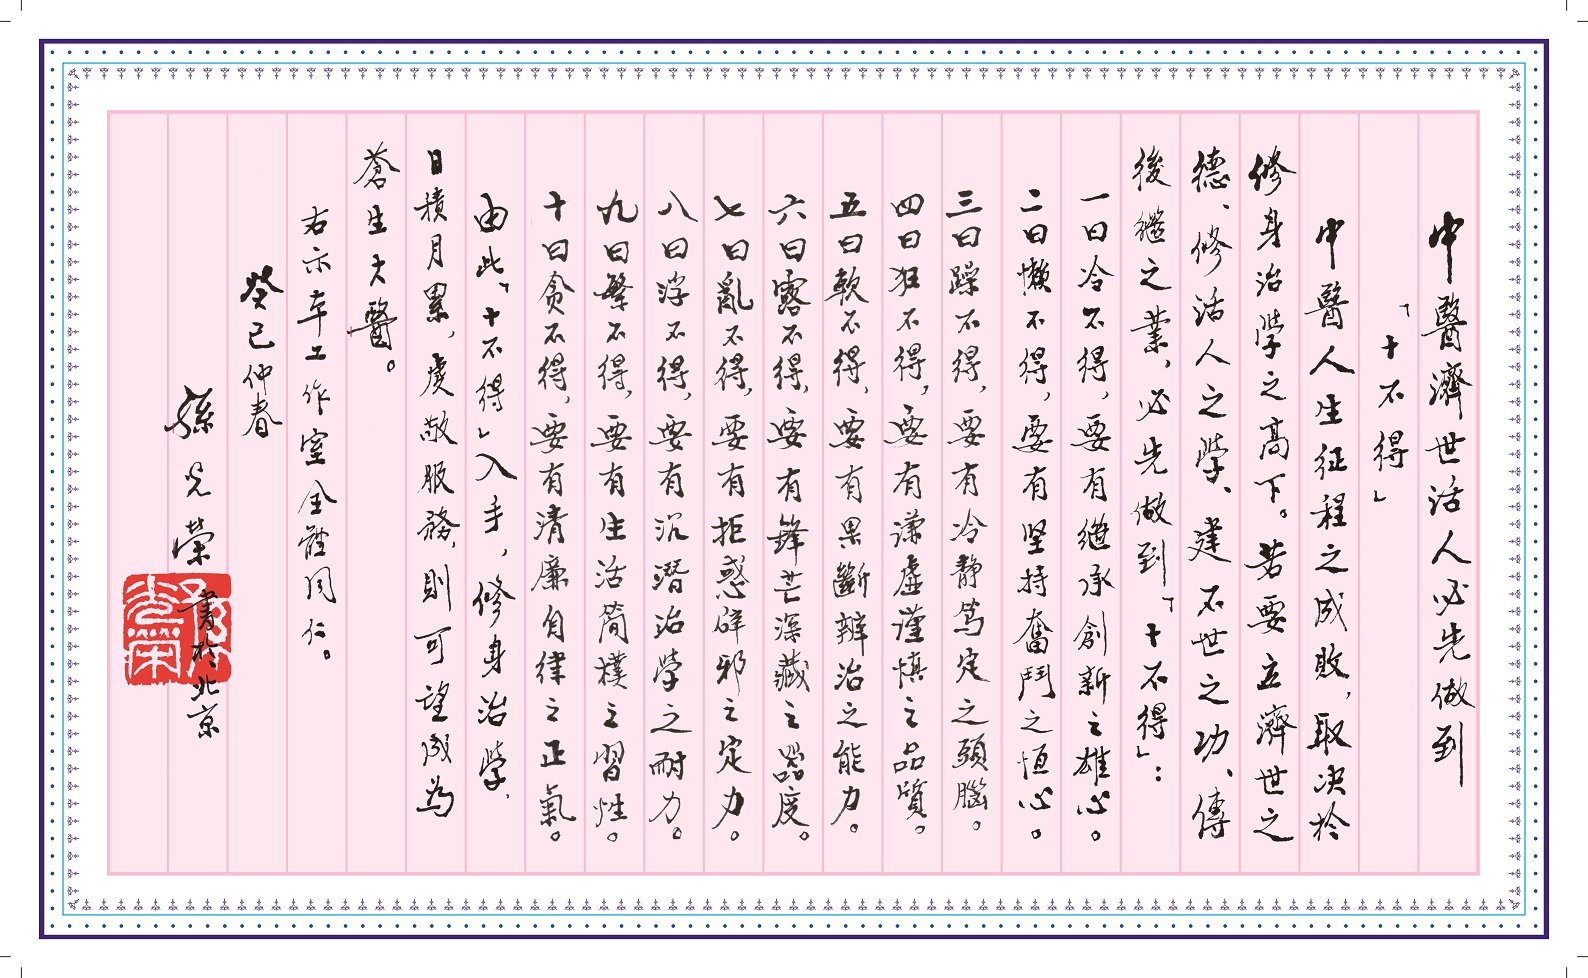 中醫濟世活人必先做到
「十不得」
中醫人生征程之成敗，取决於
修身治學之高下。若要立濟世之
德、修活人之學、建不世之功、傳
後繼之業，必先做到「十不得」：
一曰冷不得，要有繼承創新之雄心。
二曰懶不得，要有坚持奮鬥之恒心。
三曰躁不得，要有冷静篤定之頭腦。
四曰狂不得，要有谦虚谨慎之品質。
五曰軟不得，要有果斷辨治之能力。
六曰露不得，要有鋒芒深藏之器度。
七曰亂不得，要有拒惑辟邪之定力。
八曰浮不得，要有沉潛治學之耐力。
九曰繁不得，要有生活简樸之習性。
十曰贪不得，要有清廉自律之正氣。
由此「十不得」入手，修身治學，
日積月累，虔敬服務，則可望成為
蒼生大醫。
右示本工作室全體同仁。
癸巳仲春
孫光榮書於北京
孫光榮